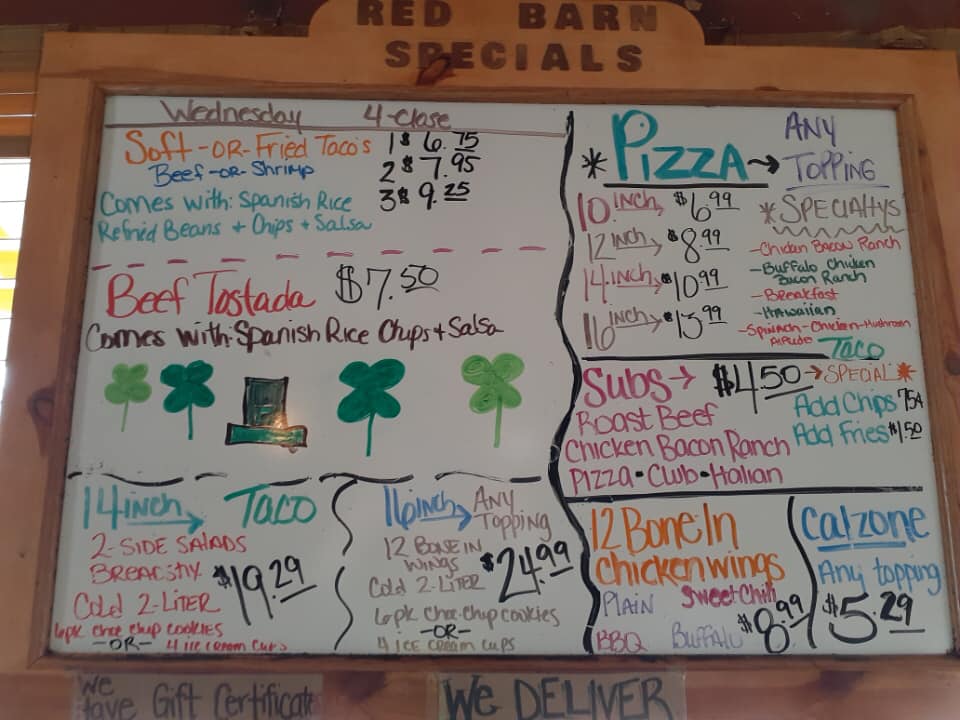 RED BARN
SPECIALS
Wednesday 4-Close
Soft-OR-Fried Taco's 1 $6.75
Beef-OR-Shrimp 2 $7.95
3 $9.25
Comes with: Spanish Rice
Refried Beans + Chips + Salsa
Beef Tostada $7.50
Comes with: Spanish Rice Chips + Salsa
14 inch → TACO
2-SIDE SALADS
BREADSTIX
$19.29
Cold 2-LITER
6pk choc chip COOKIES
-OR- 4 ICE CREAM CUPS
16 inch → ANY
TOPPING
12 BONE IN
WINGS
$24.99
Cold 2-LITER
6pk choc-chip cookies
-OR-
4 ICE CREAM CUPS
* PIZZA → ANY
TOPPING
10 INCH → $6.99
12 INCH → $8.99
14 INCH → $10.99
16 INCH → $13.99
* SPECIALTYS
-Chicken Bacon Ranch
-Buffalo Chicken
Bacon Ranch
-Breakfast
-Hawaiian
-Spinach-Chicken-Mushroom
TACO
Subs → $4.50 → SPECIAL *
Roast Beef
Chicken Bacon Ranch
Pizza • Club • Italian
Add Chips 75¢
Add Fries $1.50
12 Bone In
chicken wings
PLAIN Sweet Chili
BBQ Buffalo $8.99
Calzone
Any topping
$5.29
We
Have Gift Certificate
WE DELIVER